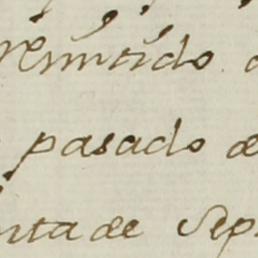 remitido
pasado de
nta de Sep